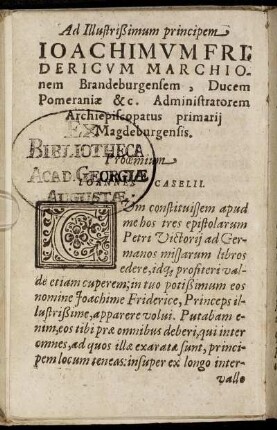 Ad Illustrißimum principem
IOACHIMVM FRI,
DERICVM MARCHIO-
nem Brandeburgensem, Ducem
Pomeraniæ &c. Administratorem
Archiepiscopatus primarij
Magdeburgensis.
EX
BIBLIOTHECA
ACAD. GEORGIÆ
AUGUSTÆ.
Proœmium
IOANNES CASELII.
Cum constituissem apud
me hos tres epistolarum
Petri Victorij ad Ger-
manos missarum libros
edere, idq; profiteri val-
de etiam cuperem; in tuo potißimum eos
nomine Joachime Friderice, Princeps il-
lustrißime, apparere volui. Putabam e-
nim, eos tibi præ omnibus deberi, qui inter
omnes, ad quos illæ exaratæ sunt, princi-
pem locum teneas: insuper ex longo inter-
vallo